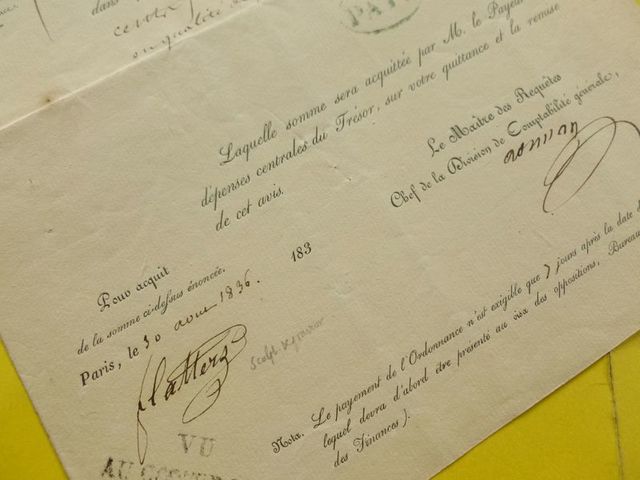 dans
en qualité de
PAY
Laquelle somme sera acquittée par M. le Payeur
dépenses centrales du Trésor, sur votre quittance et la remise
de cet avis.
Le Maître des Requêtes
Chef de la Division de Comptabilité générale,
Pour acquit
de la somme ci-dessus énoncée.
183
Paris, le 30 avril 1836.
flatters
VU
AU CONTR
Nota. Le payement de l'Ordonnance n'est exigible que 7 jours après la date d
lequel devra d'abord être présenté au visa des oppositions, Bureau
des Finances).